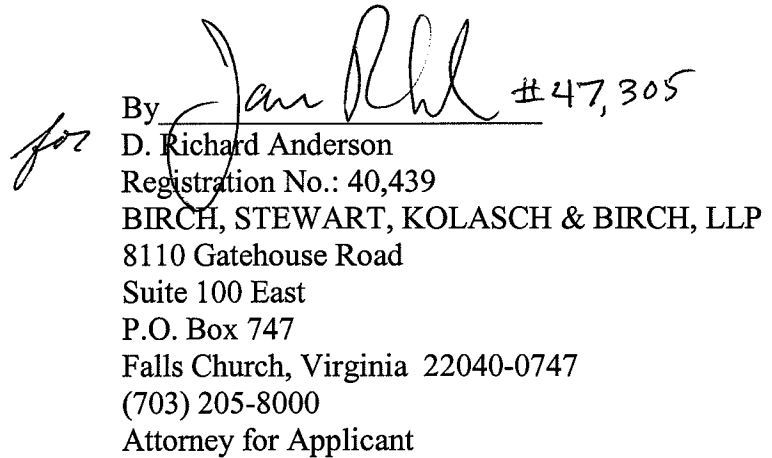 By #47,305
for
D. Richard Anderson
Registration No.: 40,439
BIRCH, STEWART, KOLASCH & BIRCH, LLP
8110 Gatehouse Road
Suite 100 East
P.O. Box 747
Falls Church, Virginia 22040-0747
(703) 205-8000
Attorney for Applicant